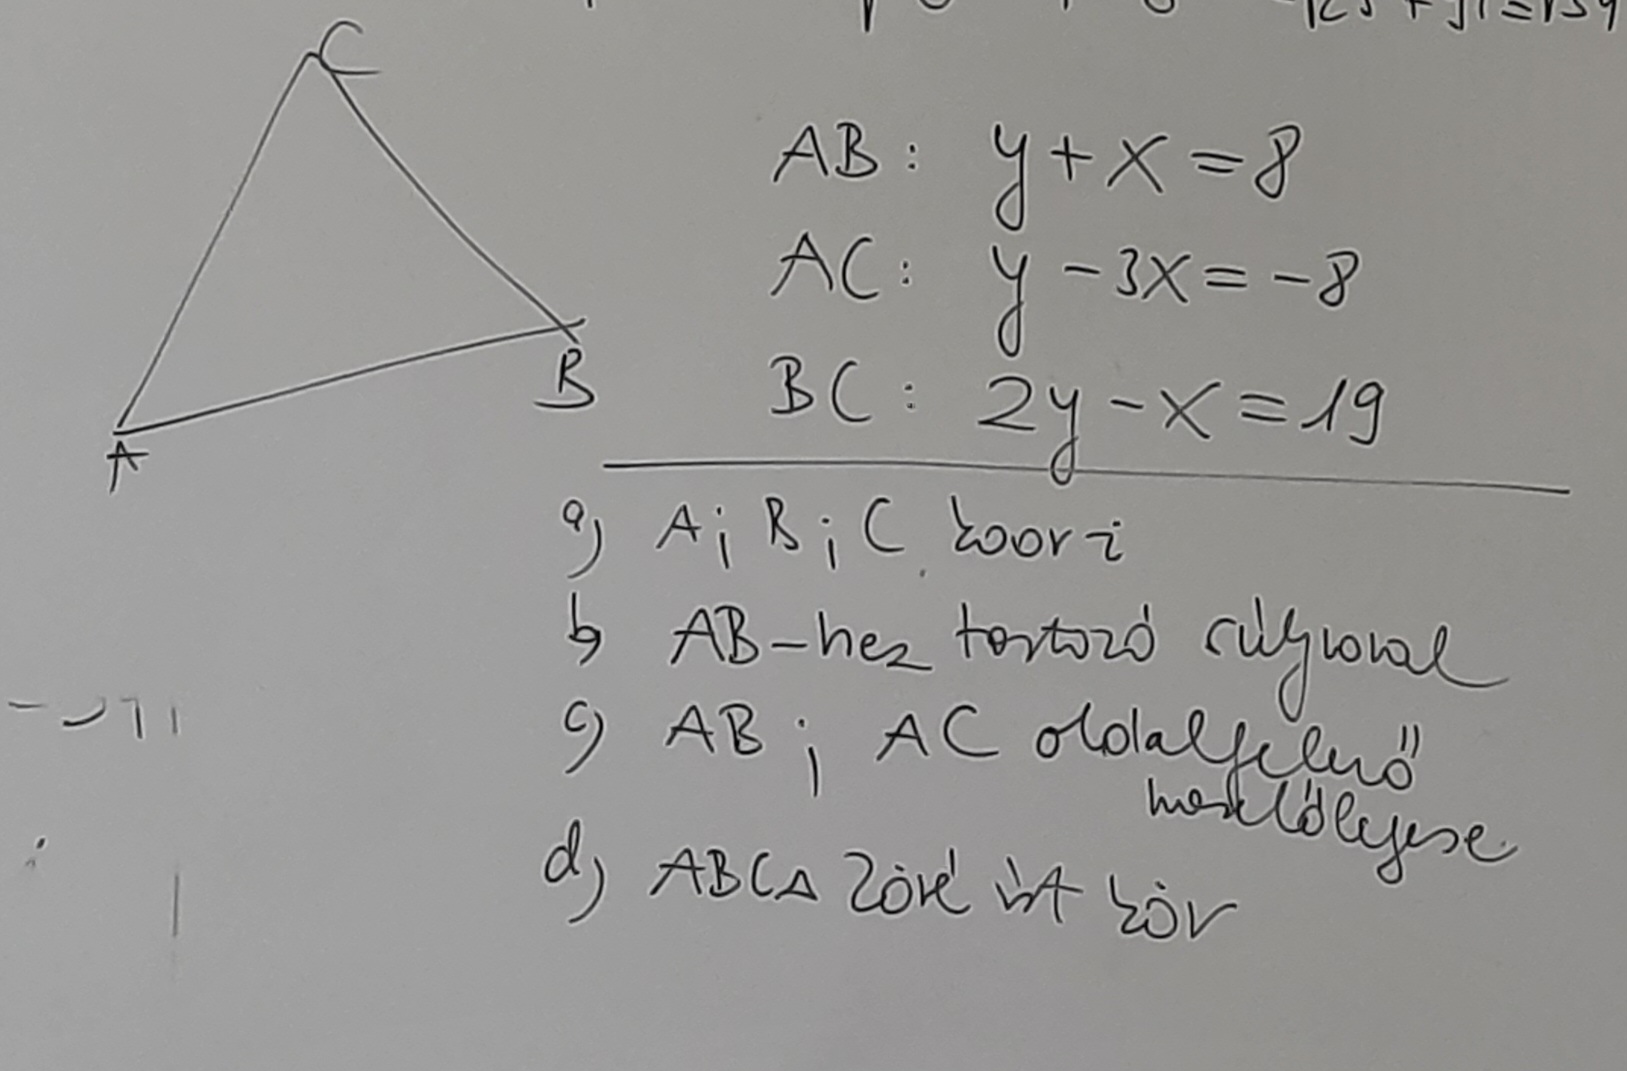 C
AB: y + x = 8
AC: y - 3x = -8
B
BC: 2y - x = 19
A
a) A; B; C koori
b) AB-hez tartozó súlyvonal
c) AB; AC oldalfelező
merőlegese
d) ABC△ köré írt kör